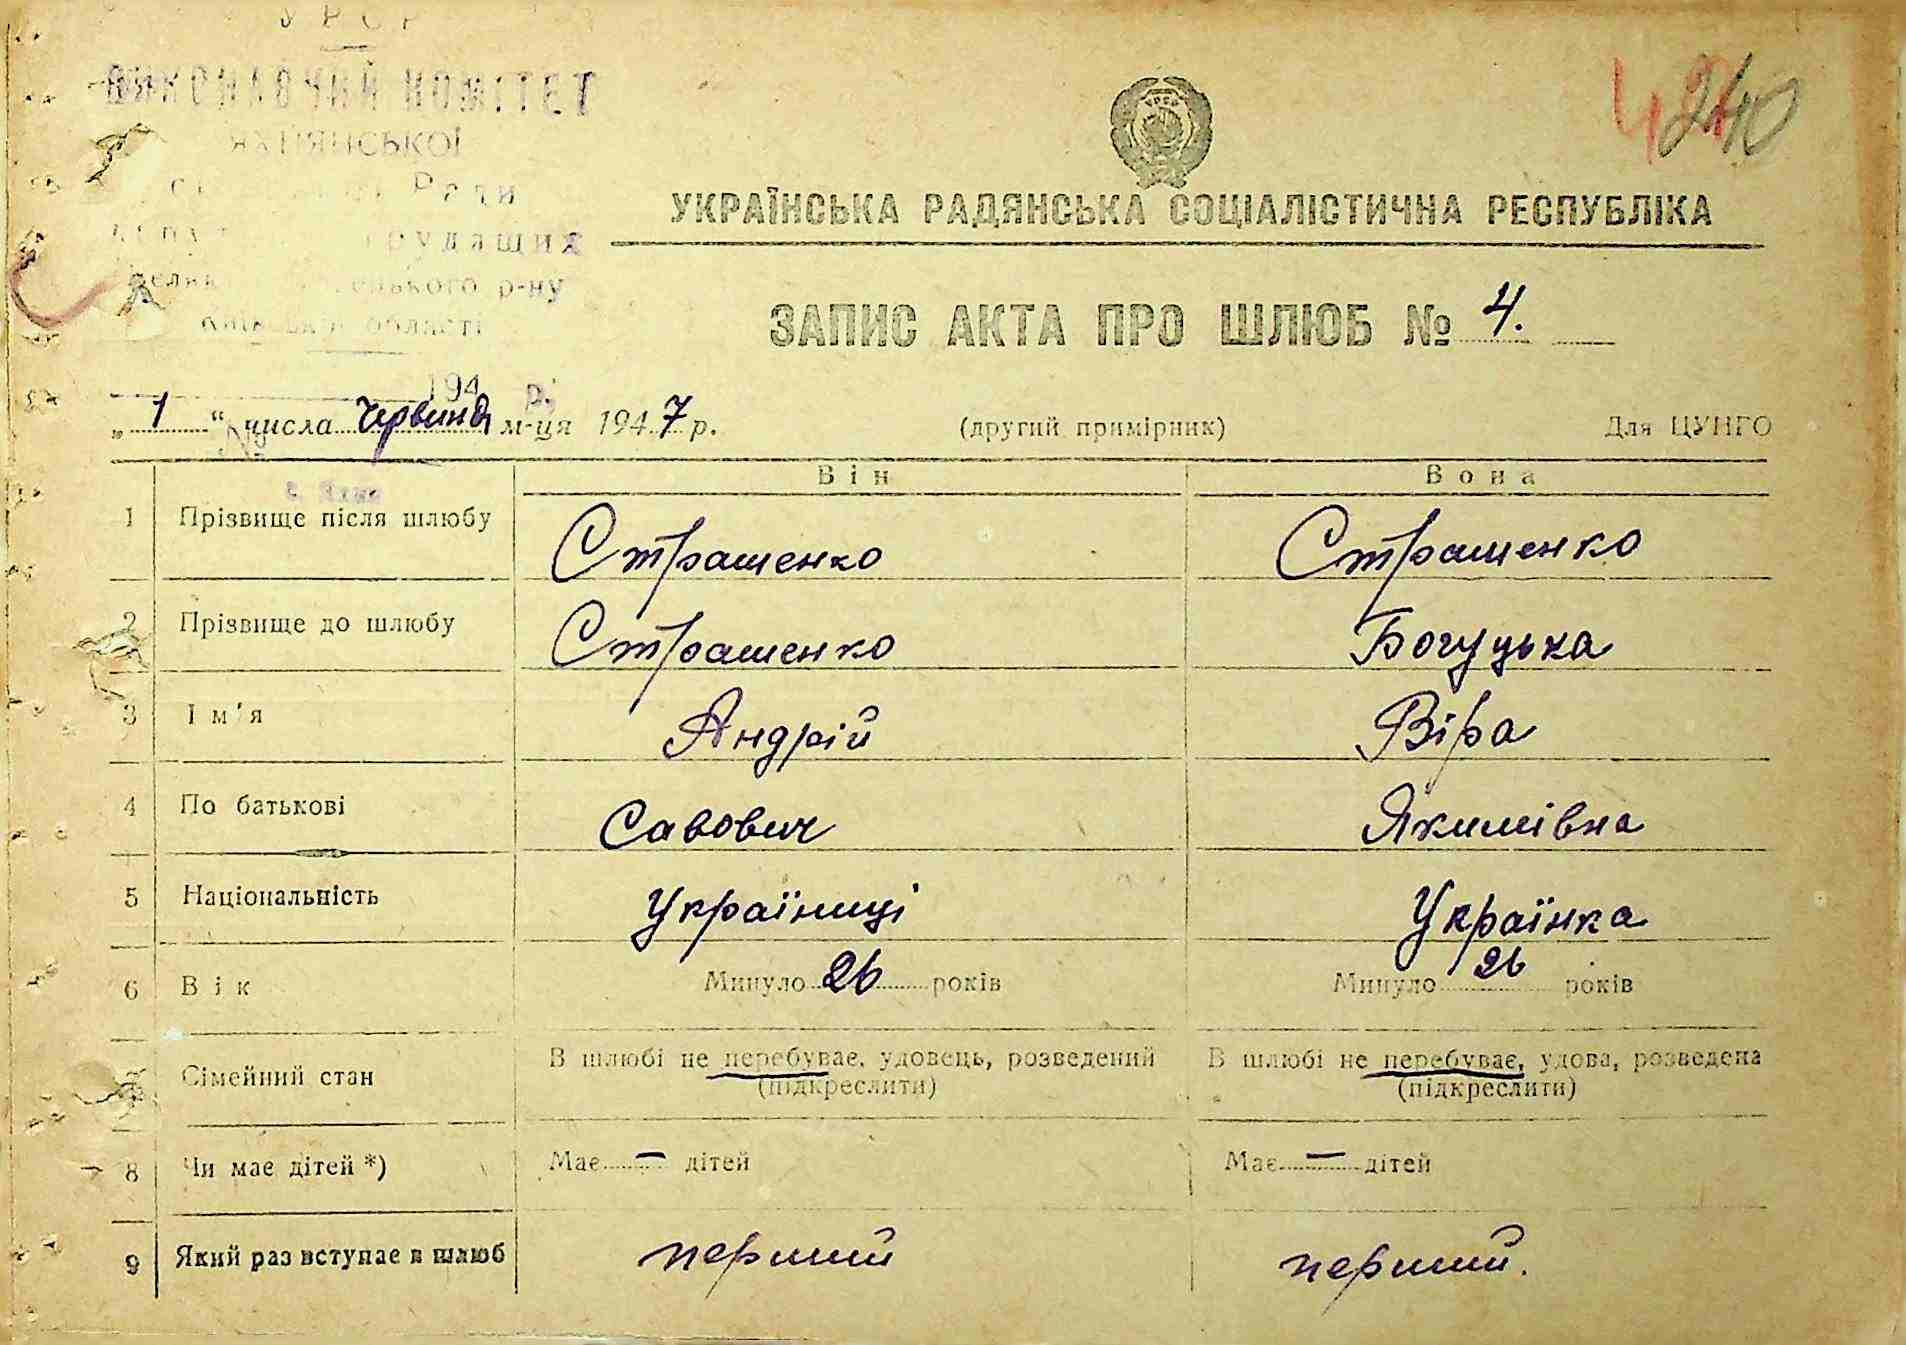 УРСР
ВИКОНАВЧИЙ КОМІТЕТ
ЯХНЯНСЬКОЇ
Ради
трудящих
р-ну
Київської області
194 р.
№
с. Яхни
4 240
УКРАЇНСЬКА РАДЯНСЬКА СОЦІАЛІСТИЧНА РЕСПУБЛІКА
ЗАПИС АКТА ПРО ШЛЮБ № 4.
„ 1 “ числа червня м-ця 1947 р. (другий примірник) Для ЦУНГО
Він Вона
1 Прізвище після шлюбу Страшенко Страшенко
2 Прізвище до шлюбу Страшенко Богуцька
3 Ім'я Андрій Віра
4 По батькові Савович Якимівна
5 Національність Українці Українка
6 Вік Минуло 26 років Минуло 26 років
Сімейний стан В шлюбі не перебуває, удовець, розведений В шлюбі не перебуває, удова, розведена
(підкреслити) (підкреслити)
8 Чи має дітей *) Має – дітей Має – дітей
9 Який раз вступає в шлюб перший перший.